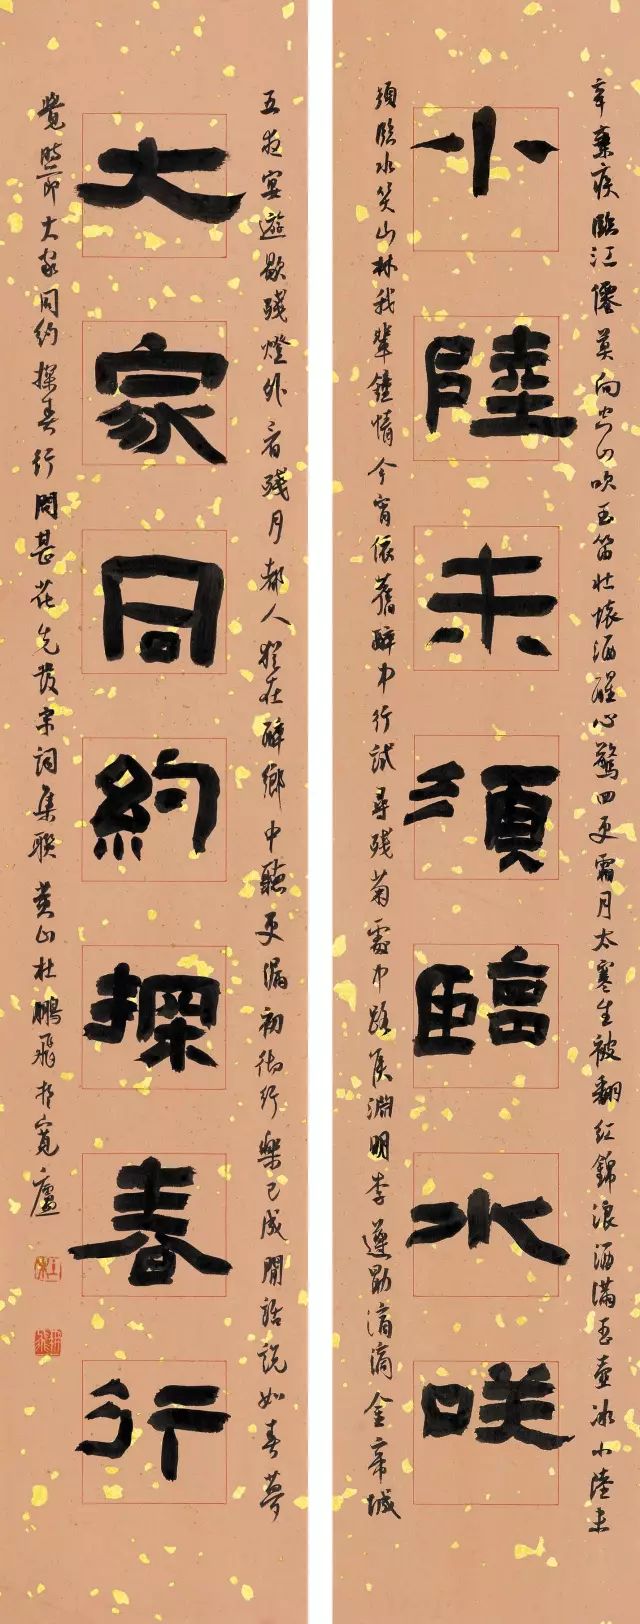 辛棄疾臨江僊莫向空山吹玉笛壯懷酒醒心驚四更霜月太寒生被翻紅錦浪酒滿玉壺冰小陸未
小陸未須臨水咲
須臨水笑山林我輩鍾情今宵依舊醉中行試尋殘菊處中路候淵明李遵勗滴滴金帝城
五夜宴遊歇殘燈外看殘月都人猶在醉鄉中聽更漏初徹行樂已成閒話說如春夢
大家同約探春行
覺時節大家同約探春行問甚花先發宋詞集聯黃山杜鵬飛於寬廬